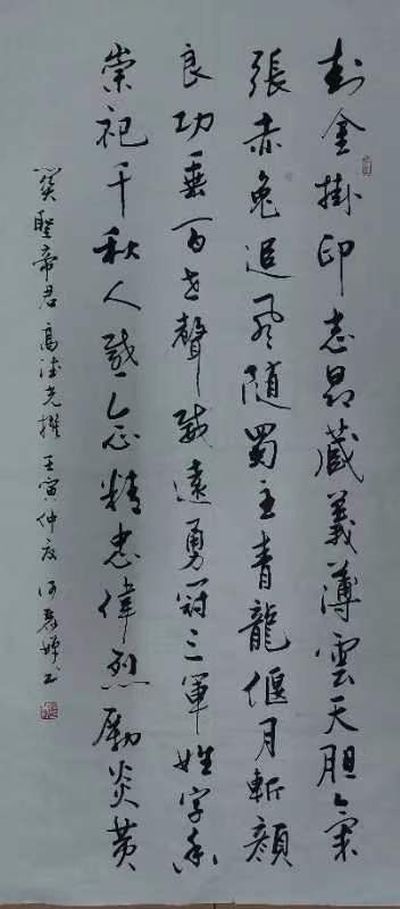 封金掛印志昂藏義薄雲天胆氣
張赤兔追風隨蜀主青龍偃月斬顏
良功垂百世聲威遠勇冠三軍姓字香
崇祀千秋人感念精忠偉烈勵炎黄
聖帝君 高 光撰 壬寅仲夏 何